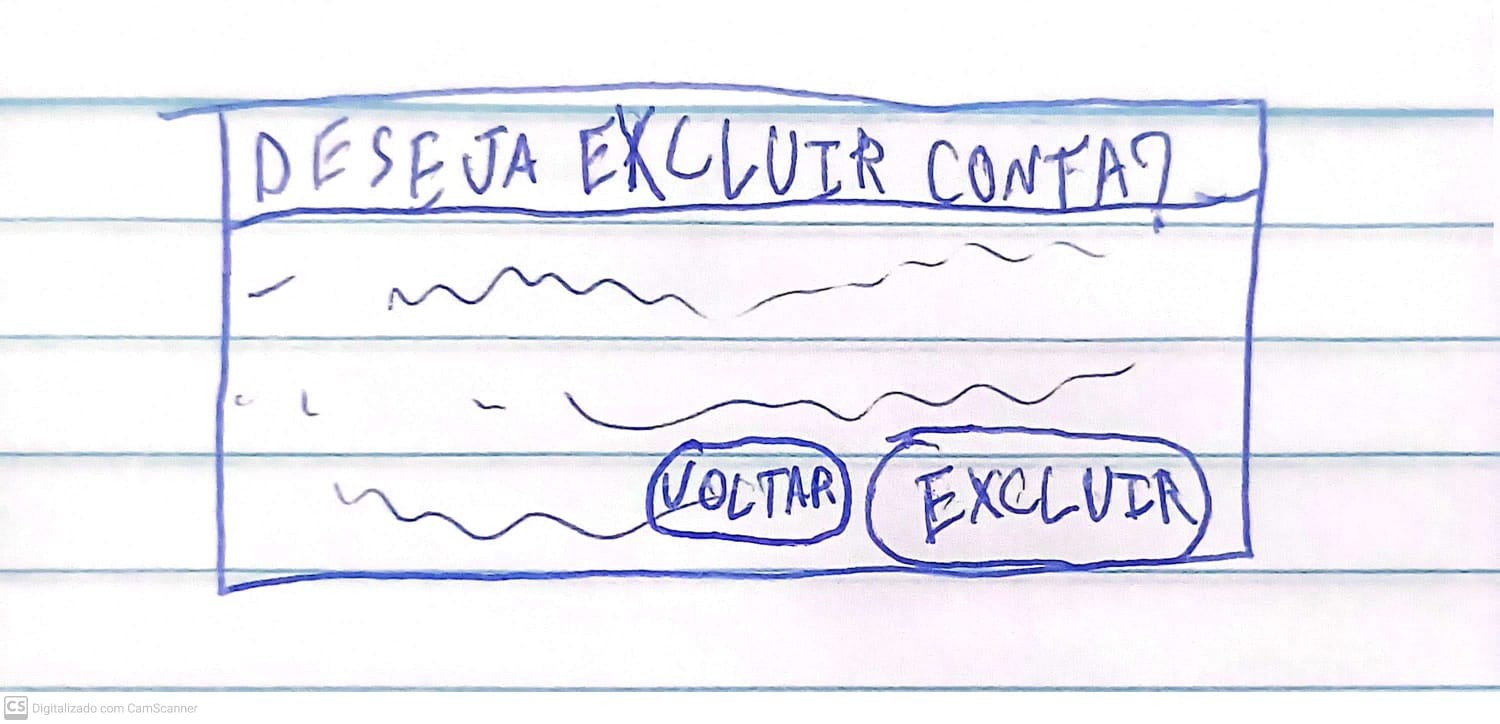 DESEJA EXCLUIR CONTA?
VOLTAR EXCLUIR
CS Digitalizado com CamScanner